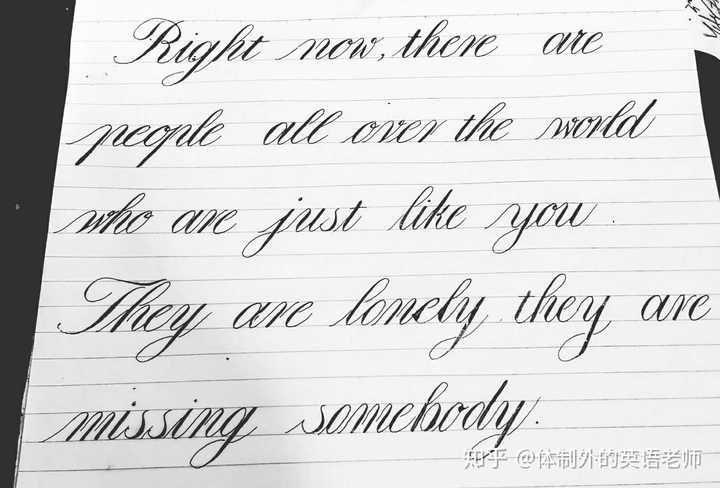 Right now, there are
people all over the world
who are just like you.
They are lonely, they are
missing somebody.
知乎 @体制外的英语老师